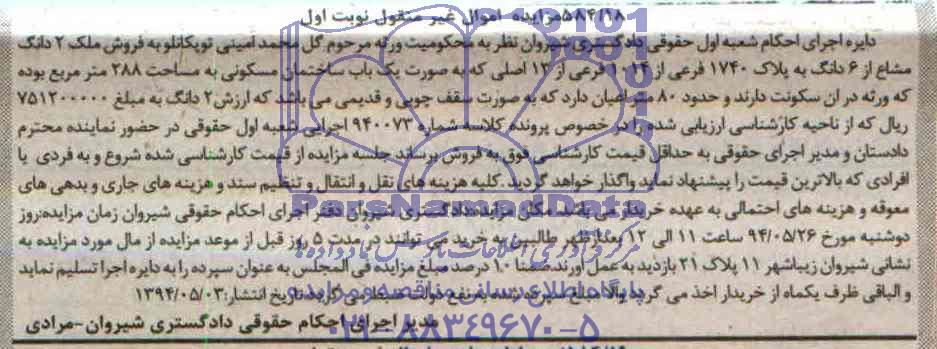 ۵۸۴/۱۸مزایده اموال غیر منقول نوبت اول
دایره اجرای احکام شعبه اول حقوقی دادگستری شیروان نظر به محکومیت ورثه مرحوم گل محمد امینی توپکانلو به فروش ملک ۲ دانگ
مشاع از ۶ دانگ به پلاک ۱۷۴۰ فرعی از ۱۰۲۴ فرعی از ۱۲ اصلی که به صورت یک باب ساختمان مسکونی به مساحت ۲۸۸ متر مربع بوده
که ورثه در ان سکونت دارند و حدود ۸۰ متر اعیان دارد که به صورت سقف چوبی و قدیمی می باشد که ارزش ۲ دانگ به مبلغ ۷۵۱۲۰۰۰۰۰
ریال که از ناحیه کارشناسی ارزیابی شده را در خصوص پرونده کلاسه شماره ۹۴۰۰۷۳ اجرایی شعبه اول حقوقی در حضور نماینده محترم
دادستان و مدیر اجرای حقوقی به حداقل قیمت کارشناسی فوق به فروش برساند جلسه مزایده از قیمت کارشناسی شده شروع و به فردی یا
افرادی که بالاترین قیمت را پیشنهاد نماید واگذار خواهد گردید.کلیه هزینه های نقل و انتقال و تنظیم سند و هزینه های جاری و بدهی های
معوقه و هزینه های احتمالی به عهده خریدار می باشد. مکان مزایده:دادگستری شیروان دفتر اجرای احکام حقوقی شیروان زمان مزایده:روز
دوشنبه مورخ ۹۴/۰۵/۲۶ ساعت ۱۱ الی ۱۲ بعدازظهر طالبین به خرید می توانند در مدت ۵ روز قبل از موعد مزایده از مال مورد مزایده به
نشانی شیروان زیباشهر ۱۱ پلاک ۲۱ بازدید به عمل آورند.ضمنا ۱۰ درصد مبلغ مزایده فی المجلس به عنوان سپرده را به دایره اجرا تسلیم نماید
و الباقی ظرف یکماه از خریدار اخذ می گردد والا مبلغ سپرده شده به نفع دولت ضبط می گردد.تاریخ انتشار:۱۳۹۴/۰۵/۰۳
مدیر اجرای احکام حقوقی دادگستری شیروان-مرادی
ParsNamadData
مرکز فرآوری اطلاعات پارس نماد داده ها
پایگاه اطلاع رسانی مناقصه و مزایده
۰۲۱-۸۸۳۴۹۶۷۰-۵